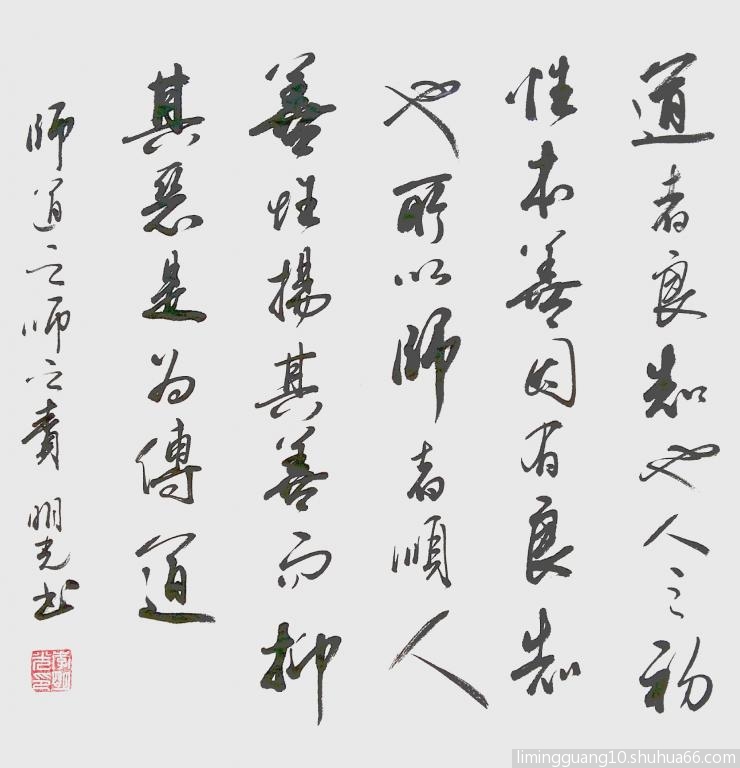 道者良知也人之初
性本善因有良知
也所以师者順人
善性揚其善而抑
其惡是为傳道
师道之师之責 明光书
limingguang10.shuhua66.com